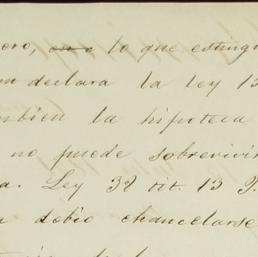 oro, lo que esting
declara la ley 13
mbien la hipoteca
no puede sobrevivir
a. Ley 32 tit. 13 P.
debio chancelarse